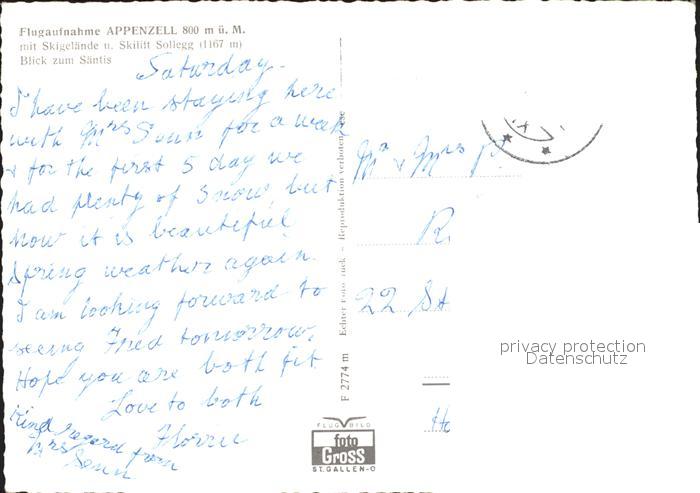 Flugaufnahme APPENZELL 800 m ü. M.
mit Skigelände u. Skilift Sollegg (1167 m)
Blick zum Säntis
Saturday.
I have been staying here
with Mrs Sonn for a week
& for the first 5 day we
had plenty of snow, but
now it is beautiful
spring weather again.
I am looking forward to
seeing Fred tomorrow.
Hope you are both fit
Love to both
Florrie
Kind regard from
Mrs Sonn
F 2774 m Echter Foto – Reproduktion verboten
FLUGBILD
foto
Gross
ST.GALLEN-O
Mr & Mrs
R
22 St
Ho
privacy protection
Datenschutz